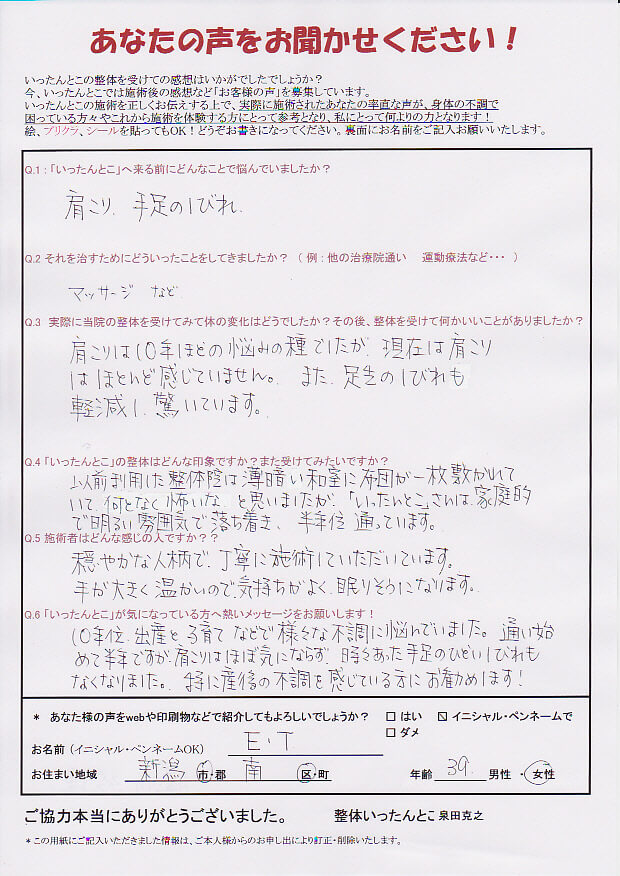 あなたの声をお聞かせください！
いったんとこの整体を受けての感想はいかがでしたでしょうか？
今、いったんとこでは施術後の感想など「お客様の声」を募集しています。
いったんとこの施術を正しくお伝えする上で、実際に施術されたあなたの率直な声が、身体の不調で
困っている方々やこれから施術を体験する方にとって参考となり、私にとって何よりの力となります！
絵、プリクラ、シールを貼ってもOK！どうぞお書きになってください。裏面にお名前をご記入お願いいたします。
Q.1：「いったんとこ」へ来る前にどんなことで悩んでいましたか？
肩こり、手足のしびれ、
Q.2 それを治すためにどういったことをしてきましたか？ （ 例：他の治療院通い　運動療法など・・・ ）
マッサージ など
Q.3 実際に当院の整体を受けてみて体の変化はどうでしたか？その後、整体を受けて何かいいことがありましたか？
肩こりは10年ほどの悩みの種でしたが、現在は肩こり
はほとんど感じていません。 また、足先のしびれも
軽減し、驚いています。
Q.4 「いったんとこ」の整体はどんな印象ですか？また受けてみたいですか？
以前利用した整体院は薄暗い和室に布団が一枚敷かれて
いて、何となく怖いな、と思いましたが、「いったんとこ」さんは、家庭的
で明るい雰囲気で落ち着き、半年位通っています。
Q.5 施術者はどんな感じの人ですか？？
穏やかな人柄で、丁寧に施術していただいています。
手が大きく温かいので、気持ちがよく、眠りそうになります。
Q.6 「いったんとこ」が気になっている方へ熱いメッセージをお願いします！
10年位、出産と子育てなどで様々な不調に悩んでいました。通い始
めて半年ですが、肩こりはほぼ気にならず、時々あった手足のひどいしびれも
なくなりました。特に産後の不調を感じている方にお勧めします！
* あなた様の声をwebや印刷物などで紹介してもよろしいでしょうか？ □ はい ☑ イニシャル・ペンネームで
□ ダメ
お名前（イニシャル・ペンネームOK） E・T
お住まい地域 新潟 市・郡 南 区・町 年齢 39 男性 ・ 女性
ご協力本当にありがとうございました。 整体いったんとこ 泉田克之
* この用紙にご記入いただきました情報は、ご本人様からのお申し出により訂正・削除いたします。